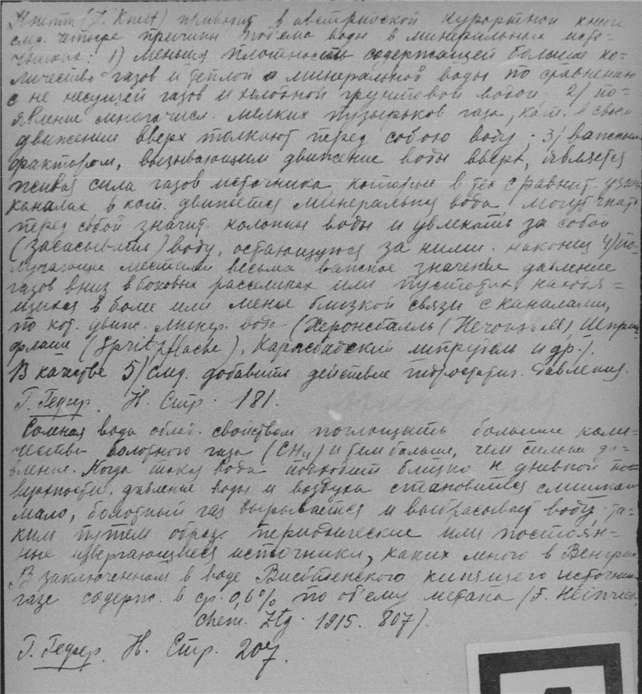 Кнетт (J. Knett) приводит в австрийской курортной книге
след. четыре причины подъема воды в минеральных исто-
чниках: 1) меньшая плотность содержащей большое ко-
личество газов и теплой минеральной воды по сравнению
с не несущей газов и холодной грунтовой водой. 2) по-
явление многочисл. мелких пузырьков газа, кот. в своем
движении вверх толкают перед собою воду; 3) важным
фактором, вызывающим движение воды вверх, является
живая сила газов источника, которые в тех сравнит. узких
каналах в кот. движется минеральная вода могут гнать
перед собой значит. колонны воды и увлекать за собой
(засасывать) воду, остающуюся за ними. наконец 4) по-
лучающее местами весьма важное значение давление
газов вниз в боковых расселинах или пустотах находя-
щихся в более или менее близкой связи с каналами,
по кот. движ. минер. вода (Херонсбалль (Heronsball) Шприц
флаше (Spritzflasche), Карлсбадский шпрудель и др.).
В качестве 5) след. добавить действие гидростатич. давления.
Г. Гефер. Н. Стр. 181.
Соленая вода облад. свойством поглощать большие коли-
чества болотного газа (CH4) и тем больше, чем сильнее да-
вление. Когда такая вода подходит близко к дневной по-
верхности, давление воды и воздуха становится слишком
мало, болотный газ вырывается и выбрасывает воду, та-
ким путем образ. периодические или постоян-
ные извергающиеся источники, каких много в Венгрии
В заключенном в воде Висбаденского кипящего источника
газе содерж. в ср. 0,6% по объему метана (F. Heinrich
Chem. Ztg. 1915. 807).
Г. Гефер. Н. Стр. 207.